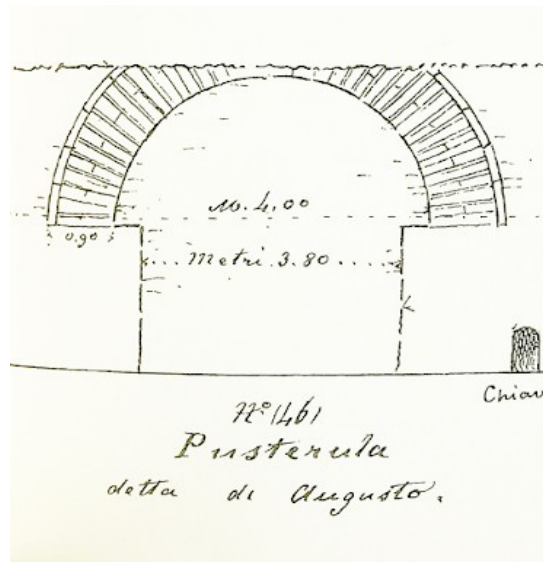 m. 4.00
0.90
Metri 3.80
Chiav
Nº 146
Pusterula
detta di Augusto.